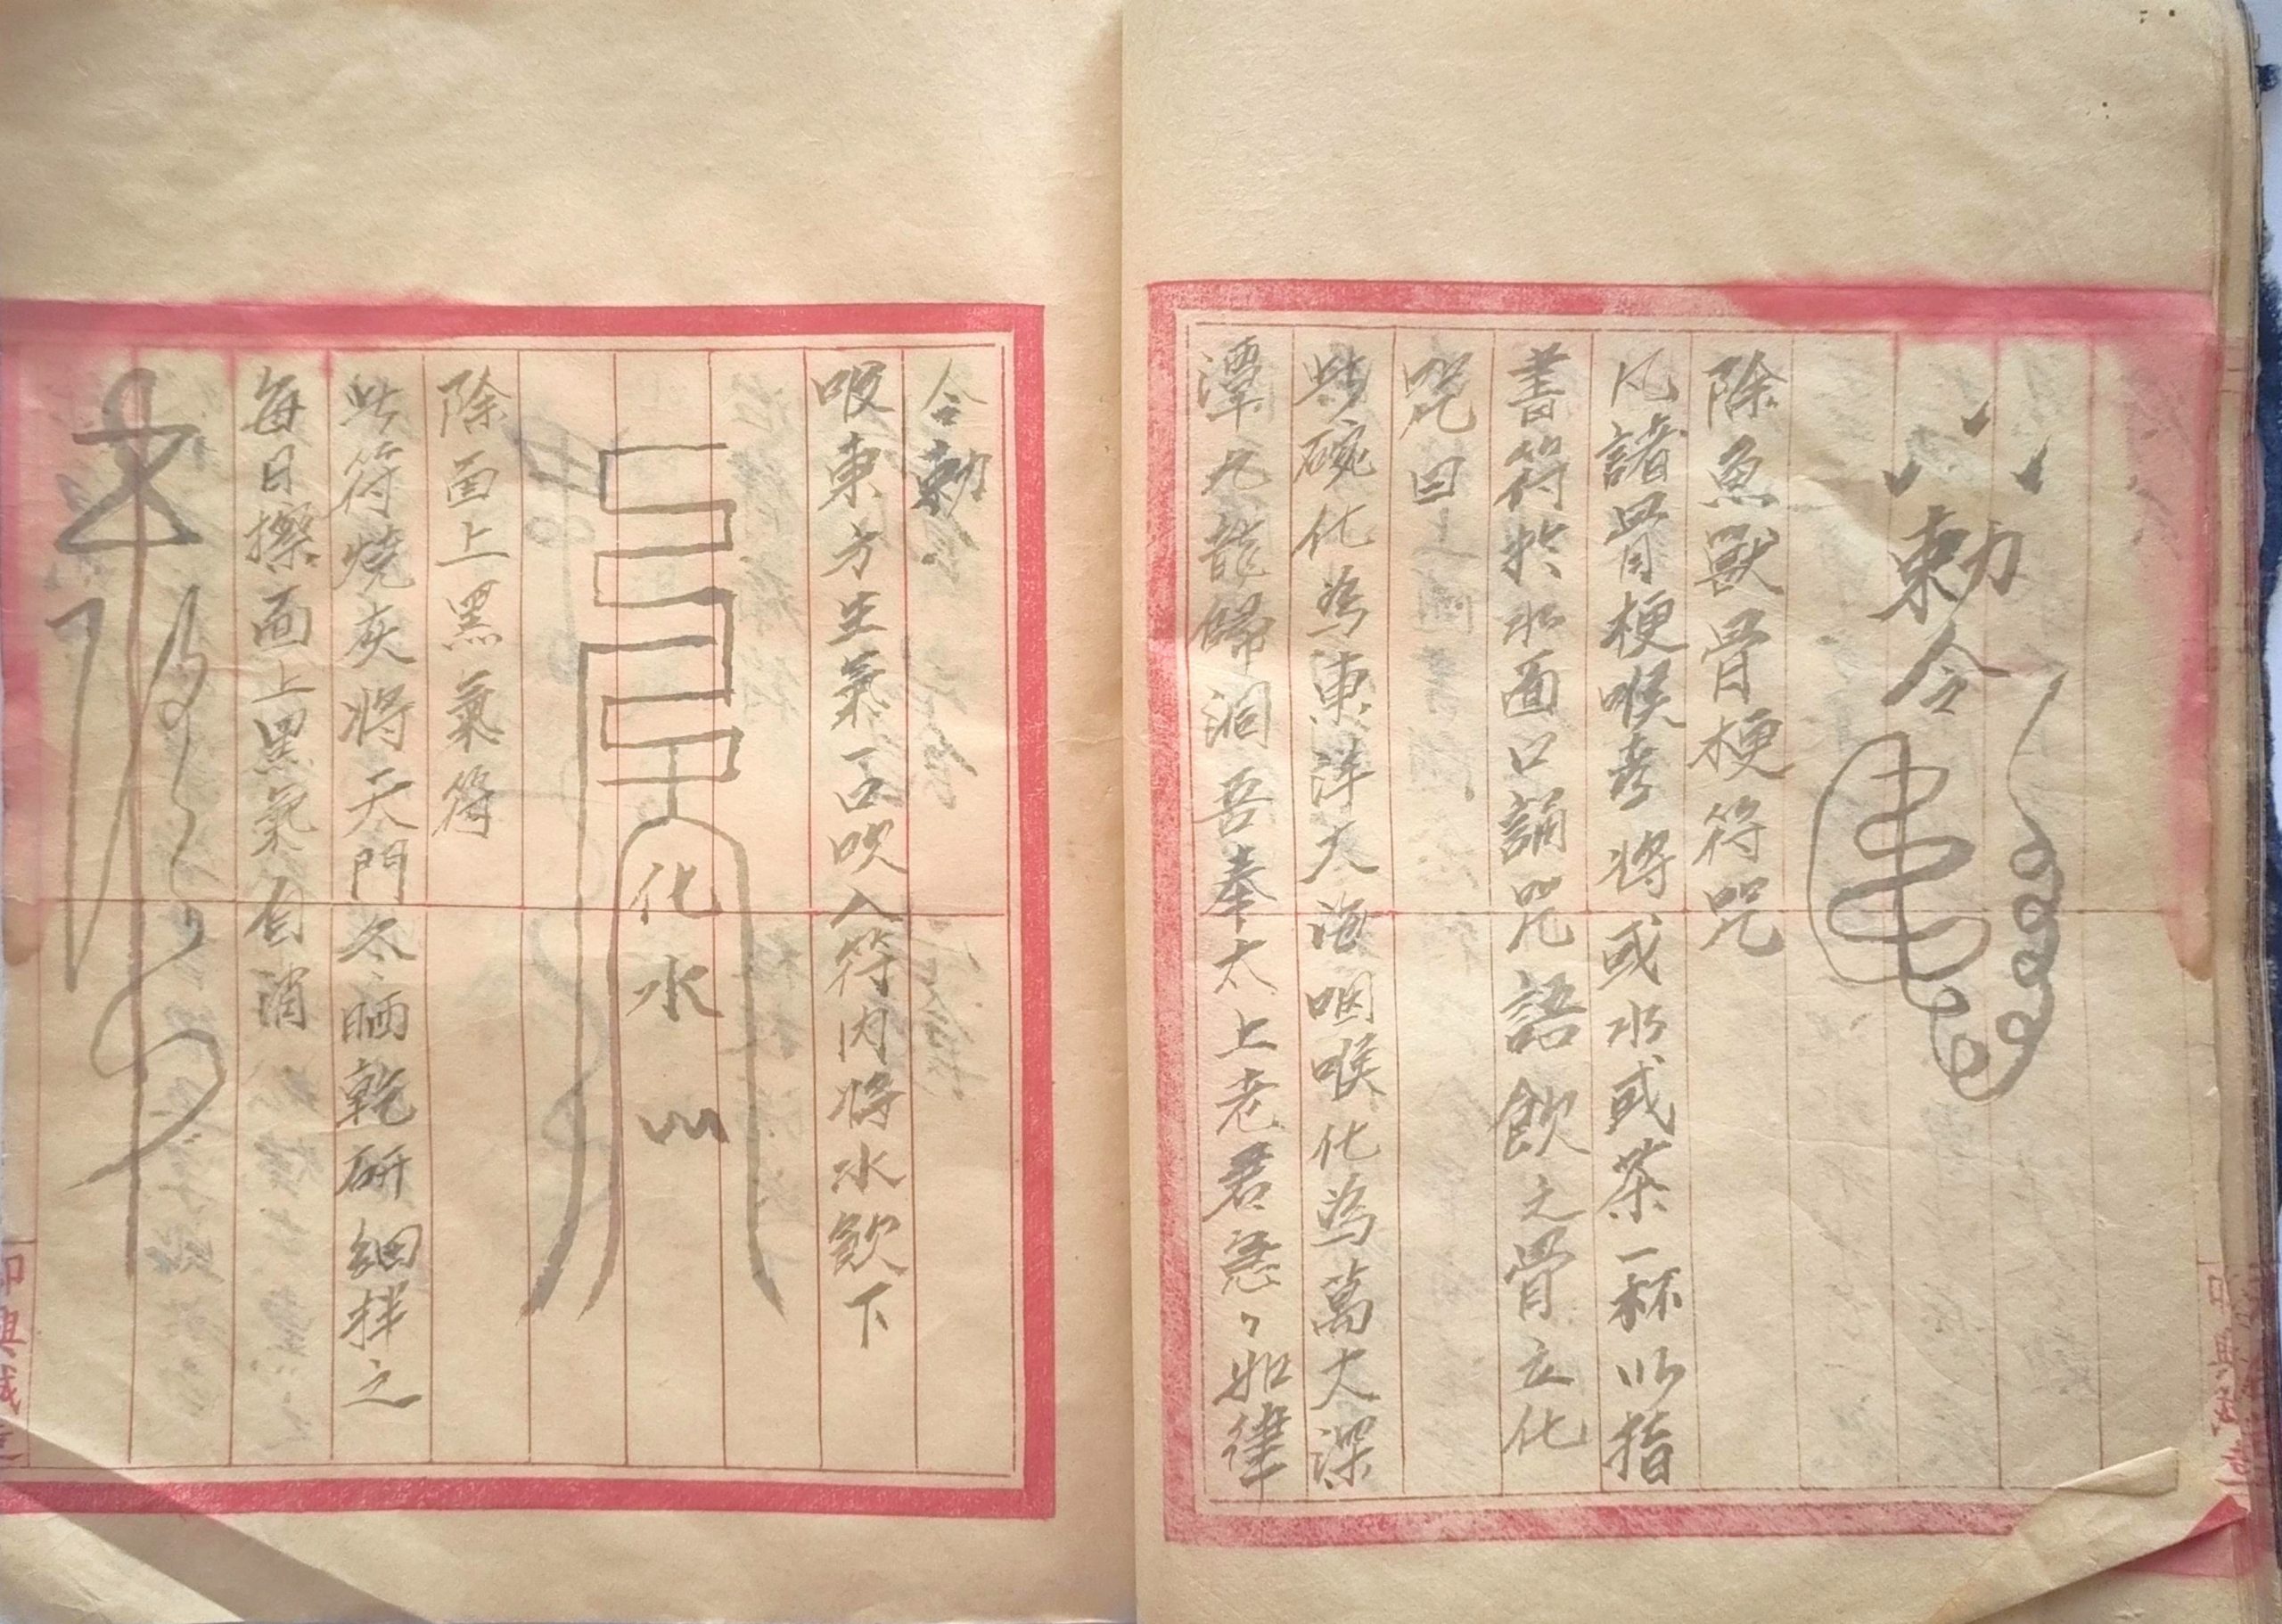 勅令
除魚獸骨梗符咒
凡諸骨梗喉者將或水或茶一杯以指
書符於水面口誦咒語飲之骨立化
咒曰
此碗化為東洋大海咽喉化為萬大深
潭九龍歸洞吾奉太上老君急々如律
令勅
吸東方生氣一口吹入符內將水飲下
化水
除面上黑氣符
此符燒灰將天門冬晒乾研細拌之
每日擦面上黑氣自消